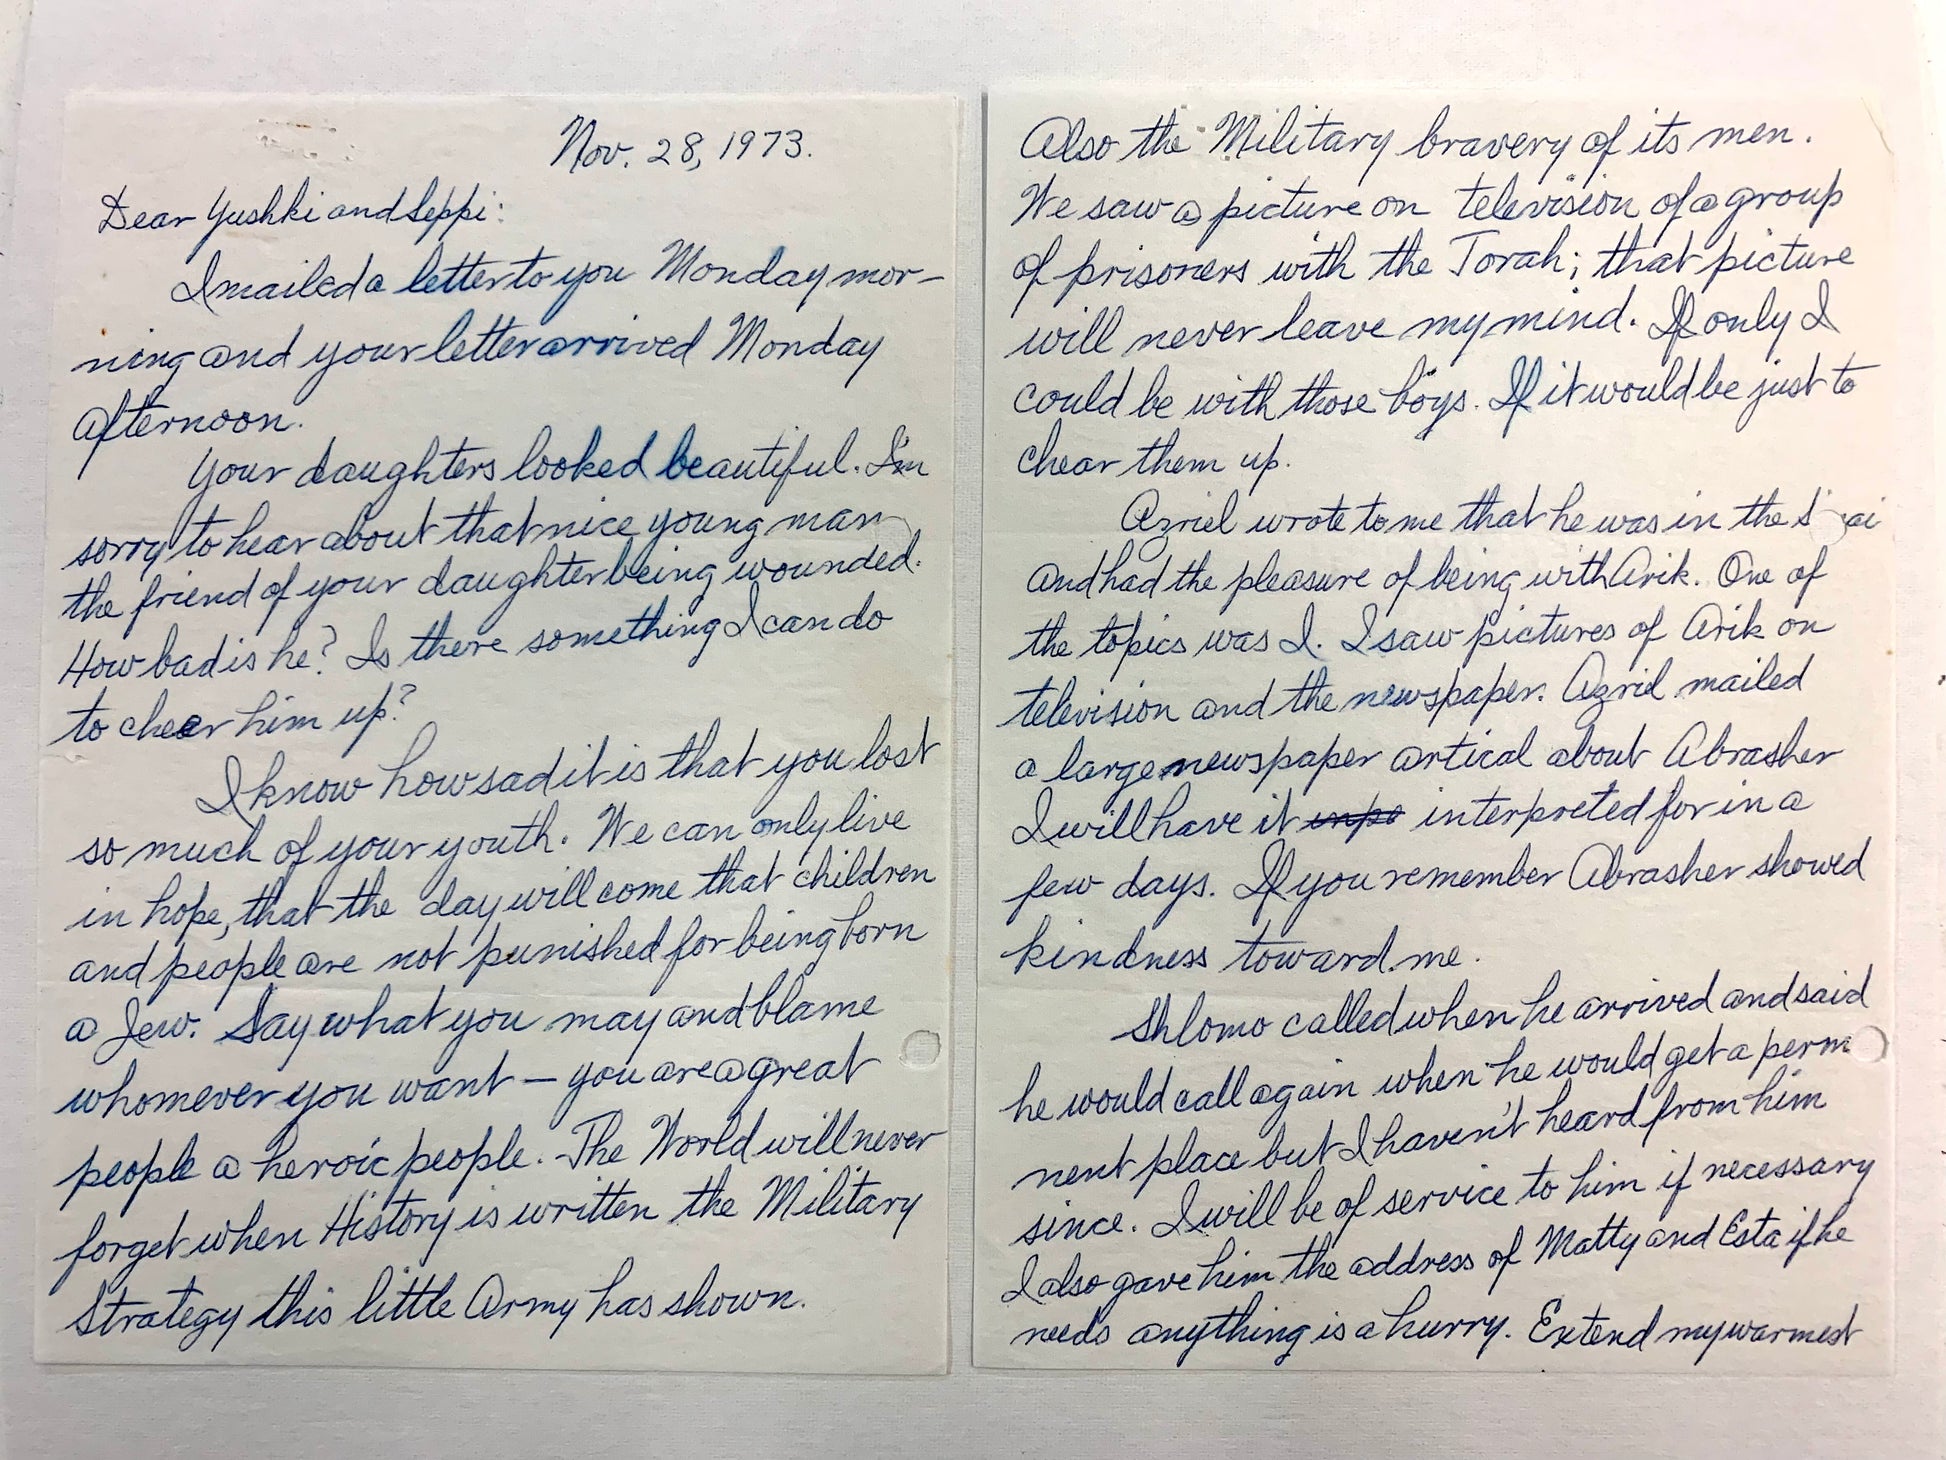 Nov. 28, 1973.
Dear Yushki and Seppi:
I mailed a letter to you Monday mor-
ning and your letter arrived Monday
afternoon.
Your daughters looked beautiful. I'm
sorry to hear about that nice young man
the friend of your daughter being wounded.
How bad is he? Is there something I can do
to cheer him up?
I know how sad it is that you lost
so much of your youth. We can only live
in hope, that the day will come that children
and people are not punished for being born
a Jew. Say what you may and blame
whomever you want — you are a great
people a heroic people. The World will never
forget when History is written the Military
Strategy this little Army has shown.
Also the Military bravery of its men.
We saw a picture on television of a group
of prisoners with the Torah; that picture
will never leave my mind. If only I
could be with those boys. If it would be just to
chear them up.
Azriel wrote to me that he was in the S ai
and had the pleasure of being with Arik. One of
the topics was I. I saw pictures of Arik on
television and the newspaper. Azriel mailed
a large newspaper artical about Abrasher
I will have it interpreted for in a
few days. If you remember Abrasher showed
kindness toward me.
Shlomo called when he arrived and said
he would call again when he would get a perm
nent place but I haven't heard from him
since. I will be of service to him if necessary
I also gave him the address of Matty and Esta if he
needs anything is a hurry. Extend my warmest